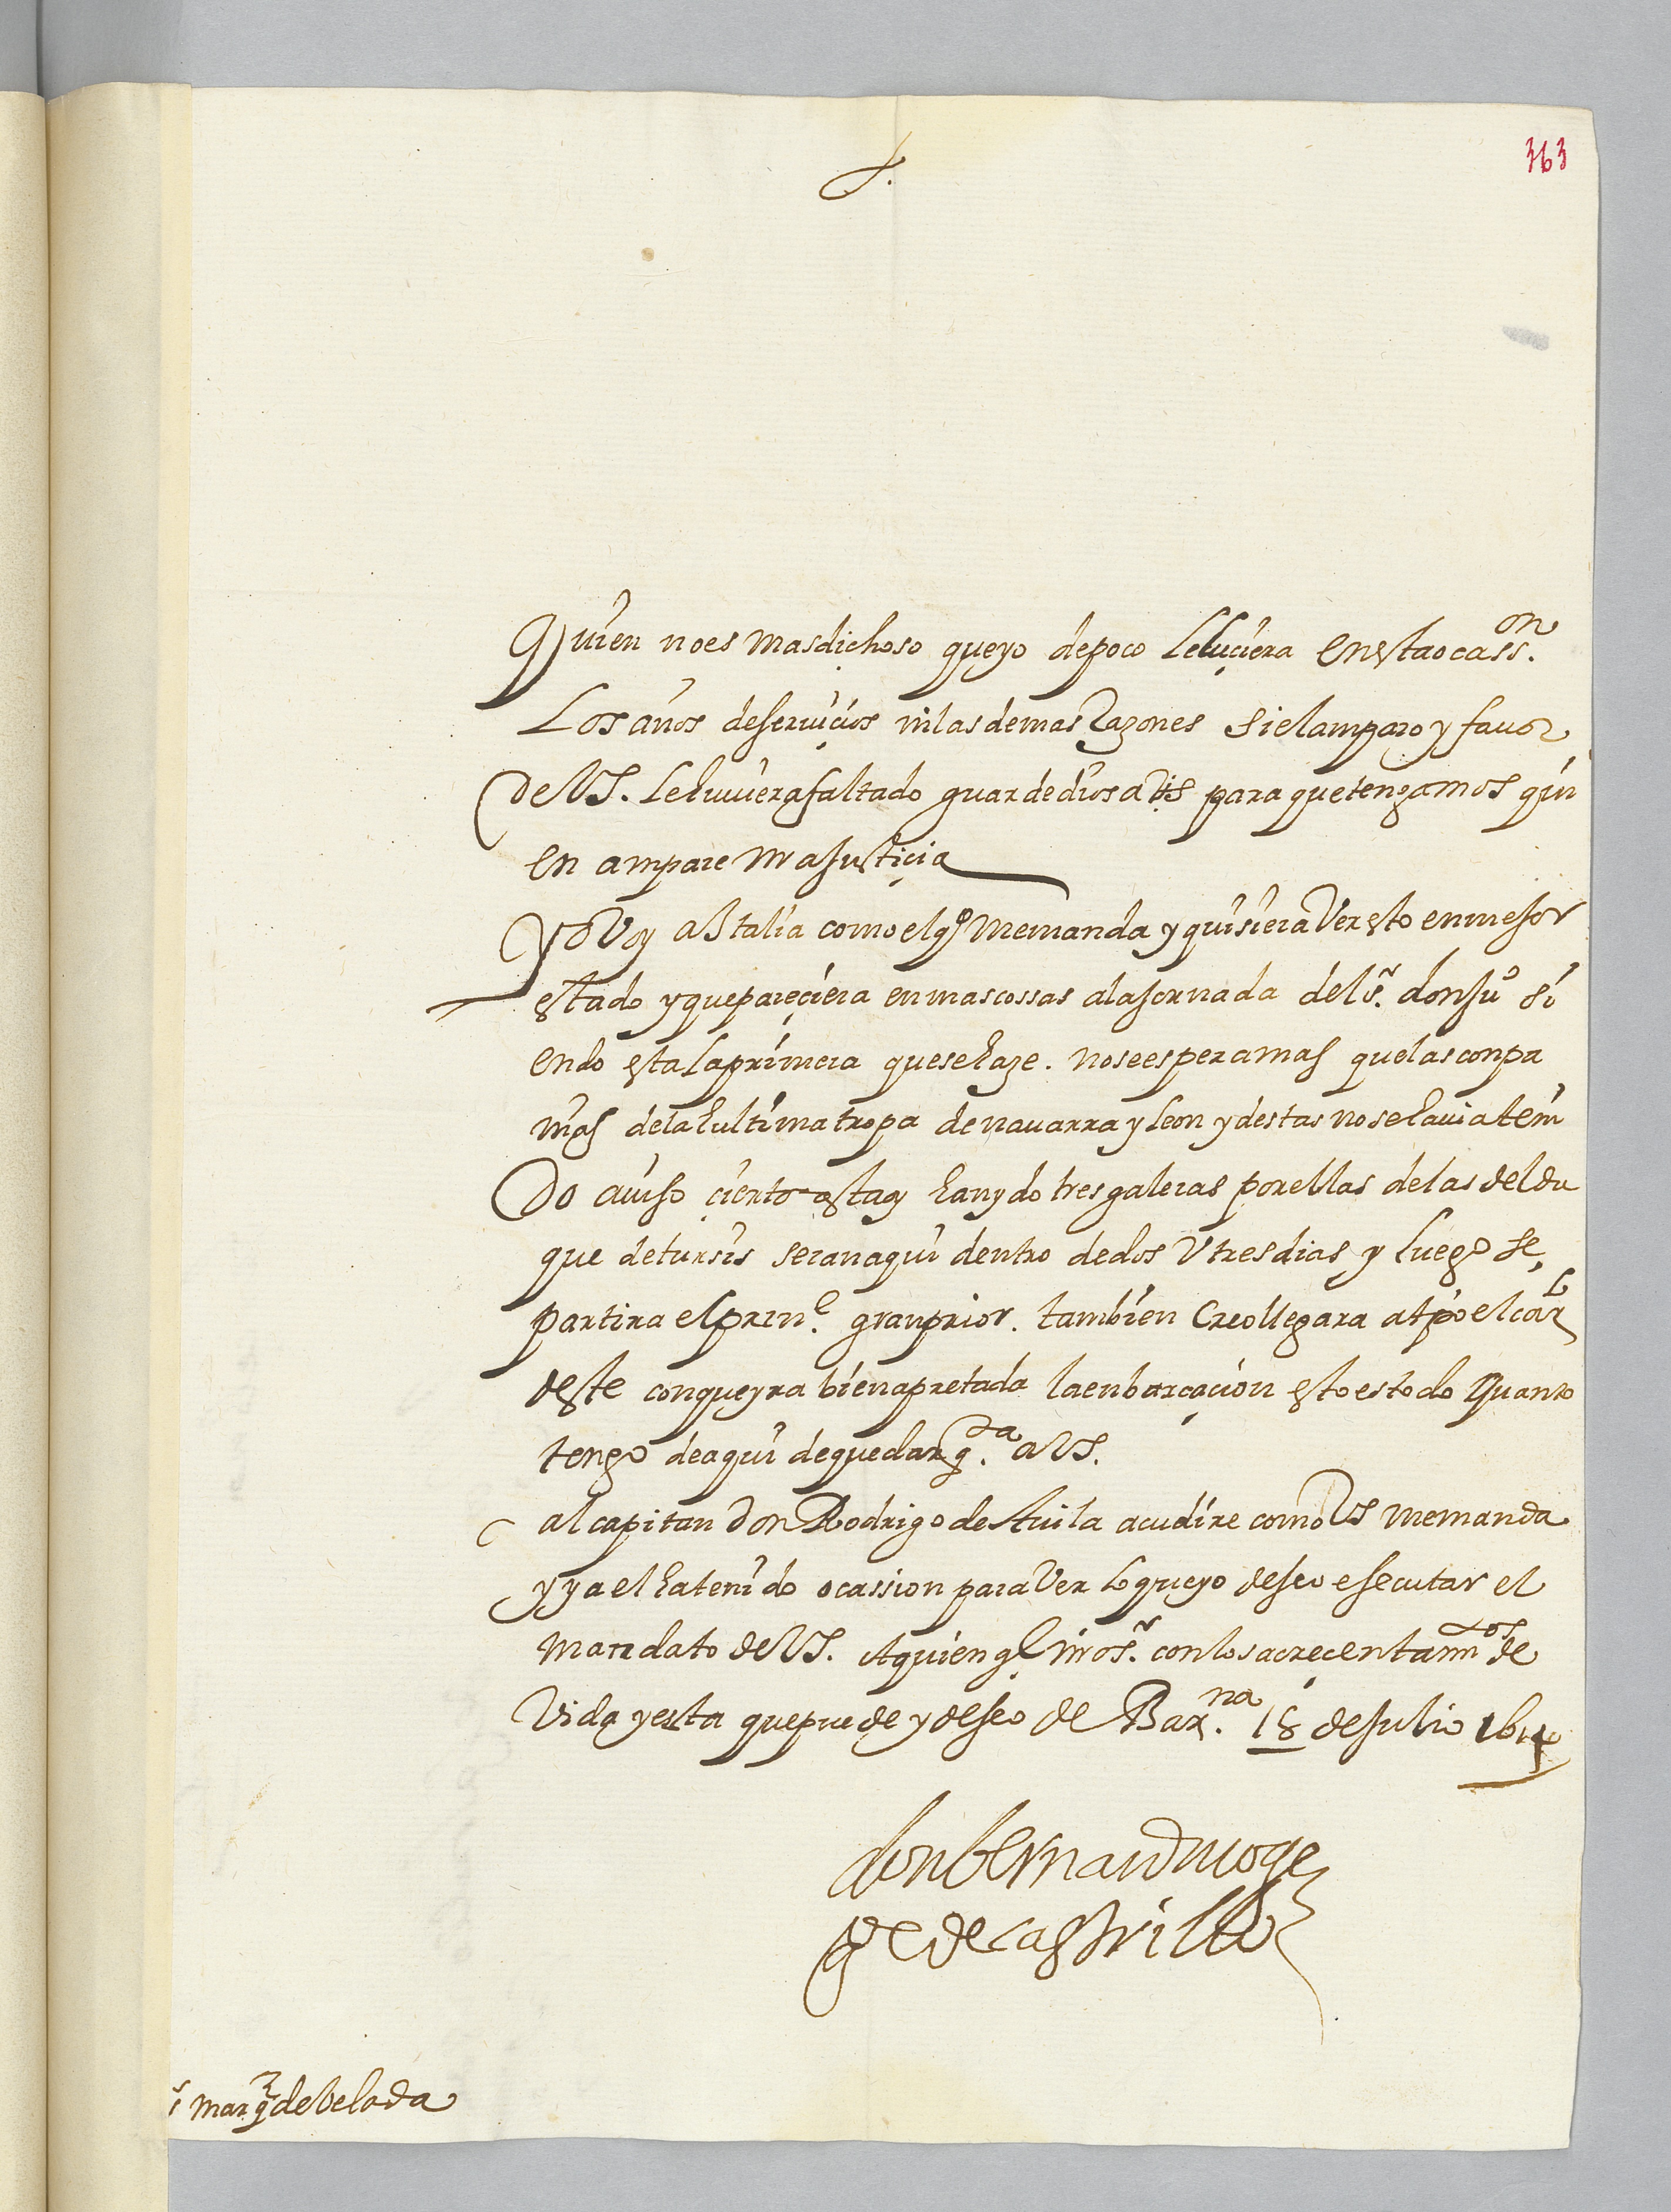 363
Quien no es mas dichoso que yo de poco le luçiera en esta ocass.on
Los años de seruiçios ni las demas Razones si el amparo y fauor
de VS. le huuiera faltado guarde dios a VS para que tengamos qui
en ampare nra justiçia
Yo Voy a Italia como el q me manda y quisiera Ver esto en mejor
estado y que pareçiera en mas cossas a la jornada del s.r don Juo si
endo esta la primera que se haze. no se espera mas que las conpa
ñias de la hultima tropa de nauarra y leon y destas no se hauia teni
do auiso çierto esta y han ydo tres galeras por ellas de las del du
que de tursis seran aqui dentro de dos V tres dias y luego se
partira el prin.e gran prior. tambien creo llegara a tpo el car.l
deste con que yra bien apretada la enbarcaçion esto es todo quanto
tengo de aqui de que dar q.ta a VS.
al capitan don Rodrigo de Auila acudire como VS me manda
y ya el ha tenido ocassion para Ver lo que yo deseo esecutar el
mandato de VS. A quien g.e nro s.r con los acreçentam.tos de
Vida y esta que puede y deseo de Bar.na 18 de julio 1614
don bernardino ge
de castrillo
s marq.s de belada